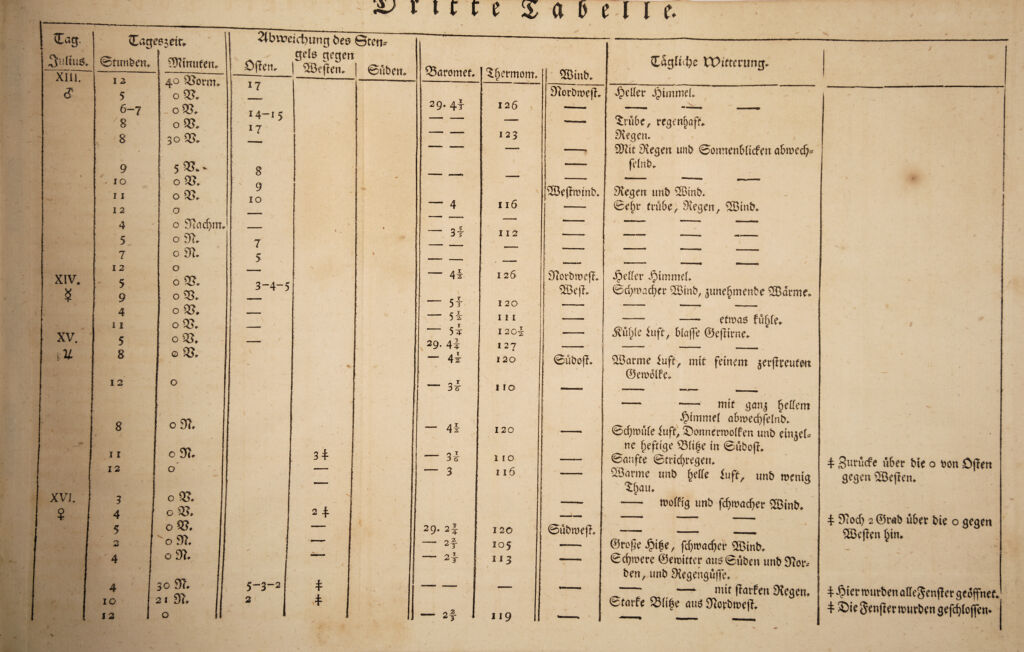 Dritte Tabelle.
Tag. Tageszeit. Abweichung des Sten-
gels gegen
Julius. Stunden. Minuten. Osten. Westen. Süden. Baromet. Thermom. Wind. Tägliche Witterung.
XIII. 12 40 Vorm. 17 Nordwest. Heller Himmel.
♂ 5 0 V. — 29. 4½ 126 — — — —
6-7 0 V. 14-15 — — — — Trübe, regenhaft.
8 0 V. 17 — — 123 — Regen.
8 30 V. — — — — — Mit Regen und Sonnenblicken abwech-
selnd.
9 5 V. 8 — — — — — — —
10 0 V. 9 Westwind. Regen und Wind.
11 0 V. 10 — 4 116 — Sehr trübe, Regen, Wind.
12 0 — — — — — — — —
4 0 Nachm. — — 3½ 112 — — — —
5 0 N. 7 — — — — — — —
7 0 N. 5 — — — — — — —
12 0 — — 4½ 126 Nordwest. Heller Himmel.
XIV. 5 0 V. 3-4-5 West. Schwacher Wind, zunehmende Wärme.
☿ 9 0 V. — — 120 — — — —
4 0 V. — — 5½ 111 — — — etwas kühle.
11 0 V. — — 5¼ 120½ — Kühle Luft, blasse Gestirne.
XV. 5 0 V. — 29. 127
♃ 8 0 V. — 4½ 120 Südost. Warme Luft, mit feinem zerstreuten
Gewölke.
12 0 — 3⅙ 110 — — — —
— — mit ganz hellem
Himmel abwechselnd.
8 0 N. — 4½ 120 — Schwüle Luft, Donnerwolken und einzel-
ne heftige Blitze in Südost.
11 0 N. 3 ‡ — 3⅙ 110 — Sanfte Strichregen. ‡ Zurücke über die 0 von Osten
12 0 — — 3 116 — Warme und helle Luft, und wenig gegen Westen.
Thau.
XVI. 3 0 V. — — — wolkig und schwacher Wind.
♀ 4 0 V. 2 ‡ — — — — ‡ Noch 2 Grad über die 0 gegen
5 0 V. — 29. 2¾ 120 Südwest. — — — Westen hin.
2 0 N. — — 2⅔ 105 — Große Hitze, schwacher Wind.
4 0 N. — — 2⅓ 113 — Schwere Gewitter aus Süden und Nor-
den, und Regengüsse.
4 30 N. 5-3-2 ‡ — — — — — — mit starken Regen. ‡ Hier wurden alle Fenster geöffnet.
10 21 N. 2 ‡ Starke Blitze aus Nordwest. ‡ Die Fenster wurden geschlossen.
12 0 — 2⅔ 119 — — — —